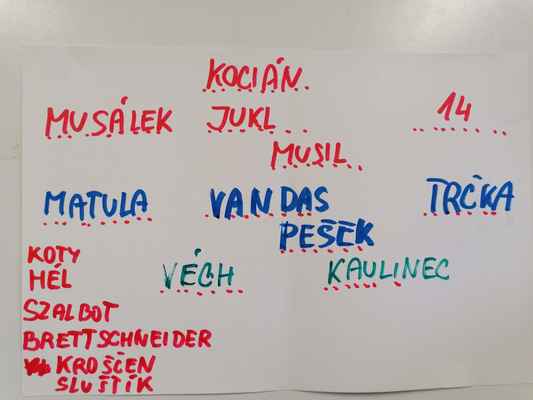 KOCIÁN
MUSÁLEK JUKL 14
MUSIL
MATULA VANDAS TRČKA
PEŠEK
KOTY
MÉL VÉCH KAULINEC
SZALBOT
BRETTSCHNEIDER
KROŠČEN
SLUŠTÍK